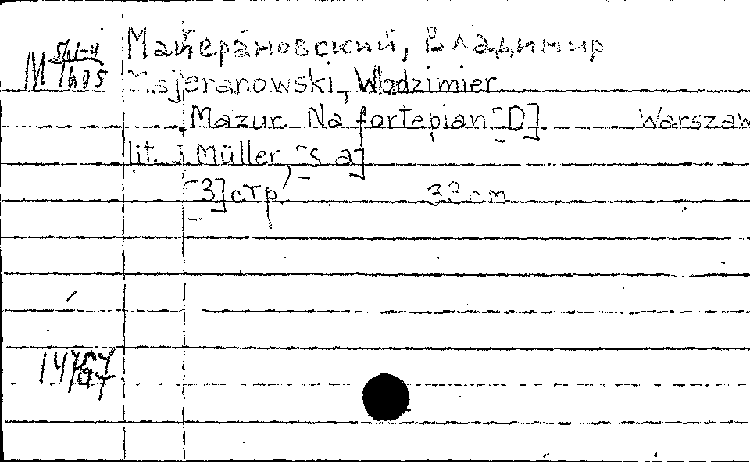 Майерановский, Владимир
Majeranowski, Włodzimier
Mazur. Na fortepian [D]. Warszaw
lit. J Müller, [s a]
[3] стр 33 cm